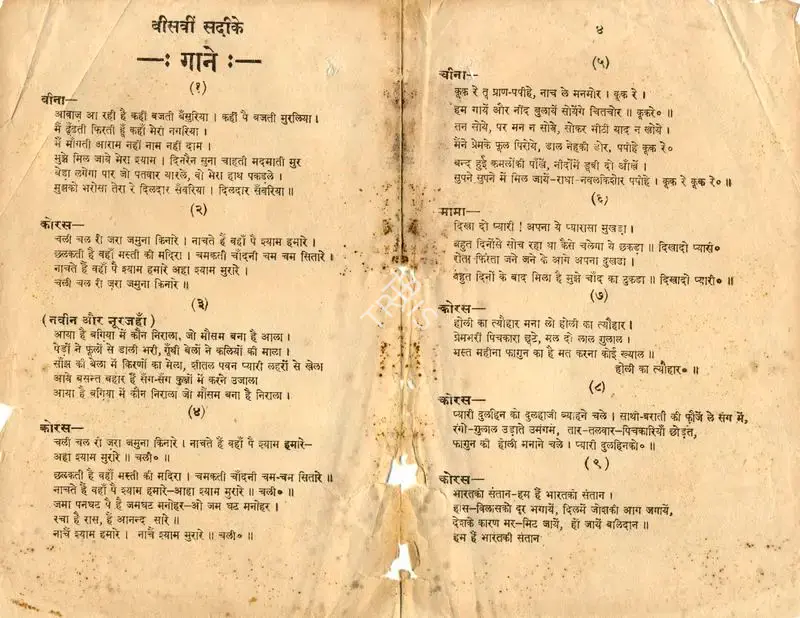 बीसवीं सदीके
—: गाने :—
(१)
वीना—
आवाज़ आ रही है कहीं बजती बँसुरिया । कहीं पै बजती मुरलिया ।
मैं ढूँढती फिरती हूँ कहाँ मेरी नगरिया ।
मैं माँगती आराम नहीं नाम नहीं दाम ।
मुझे मिल जावे मेरा श्याम । दिनरैन सुना चाहती मदमाती सुर
बेड़ा लगेगा पार जो पतवार थारले, वो मेरा हाथ पकडले ।
मुझको भरोसा तेरा रे दिलदार सँवरिया । दिलदार सँवरिया ॥
(२)
कोरस—
चली चल री ज़रा जमुना किनारे । नाचते हैं वहाँ पै श्याम हमारे ।
छलकती है वहाँ मस्ती की मदिरा । चमकती चाँदनी चम चम सितारे ।
नाचते हैं वहाँ पै श्याम हमारे अहा श्याम मुरारे ।
चली चल री ज़रा जमुना किनारे ॥
(३)
(नवीन और नूरजहाँ)
आया है बगिया में कौन निराला, जो मौसम बना है आला ।
पेड़ों ने फूलों से डाली भरी, गूँथी बेलों ने कलियों की माला ।
साँझ की बेला में किरणों का मेला, शीतल पवन प्यारी लहरों से खेला
आवे बसन्त बहार हैं सँग-सँग कुञ्जों में करने उजाला
आया है बगिया में कौन निराला जो मौसम बना है निराला ।
(४)
कोरस—
चली चल री ज़रा जमुना किनारे । नाचते हैं वहाँ पै श्याम हमारे—
अहा श्याम मुरारे ॥ चली० ॥
छलकती है वहाँ मस्ती की मदिरा । चमकती चाँदनी चम-चम सितारे ॥
नाचते हैं वहाँ पै श्याम हमारे—आहा श्याम मुरारे ॥ चली० ॥
जमा पनघट पै है जमघट मनोहर—ओ जम घट मनोहर ।
रचा है रास, हैं आनन्द सारे ॥
नाचैं श्याम हमारे । नाचैं श्याम मुरारे ॥ चली० ॥
४
(५)
वीना--
कूक रे तू प्राण-पपीहे, नाच ले मनमोर । कूक रे ।
हम गायें और नींद बुलायें सोयेंगे चितचोर ॥ कूकरे० ॥
तन सोये, पर मन न सोवे, सोकर मीठी याद न खोये ।
मैंने प्रेमके फूल पिरोये, डाल नेहकी डोर, पपीहे कूक रे०
बन्द हुई कमलोंकी पाँखें, नींदोंमें डूबी दो आँखें ।
सुपने सुपने में मिल जायें-राधा-नवलकिशोर पपीहे । कूक रे कूक रे० ॥
(६)
मामा—
दिखा दो प्यारी ! अपना ये प्यारासा मुखड़ा ।
बहुत दिनोंसे सोच रहा था कैसे चलेगा ये छकड़ा ॥ दिखादो प्यारी०
रोता फिरता जने जने के आगे अपना दुखडा ।
बहुत दिनों के बाद मिला है मुझे चाँद का टुकडा ॥ दिखादो प्यारी० ॥
(७)
कोरस—
होली का त्यौहार मना लो होली का त्यौहार ।
प्रेमभरी पिचकारी छूटे, मल दो लाल गुलाल ।
मस्त महीना फागुन का है मत करना कोई ख्याल ॥
होली का त्यौहार० ॥
(८)
कोरस—
प्यारी दुलहिन को दुलहाजी ब्याहने चले । साथी-बराती की फौजें ले संग में,
रंगो-गुलाल उड़ाते उमंगमें, तार-तलवार-पिचकारियाँ छोड़त,
फागुन की होली मनाने चले । प्यारी दुलहिनको० ॥
(९)
कोरस—
भारतकी संतान-हम हैं भारतकी संतान ।
हास-विलासको दूर भगायें, दिलमें जोशकी आग जगायें,
देशके कारण मर-मिट जायें, हो जायें बलिदान ॥
हम हैं भारतकी संतान